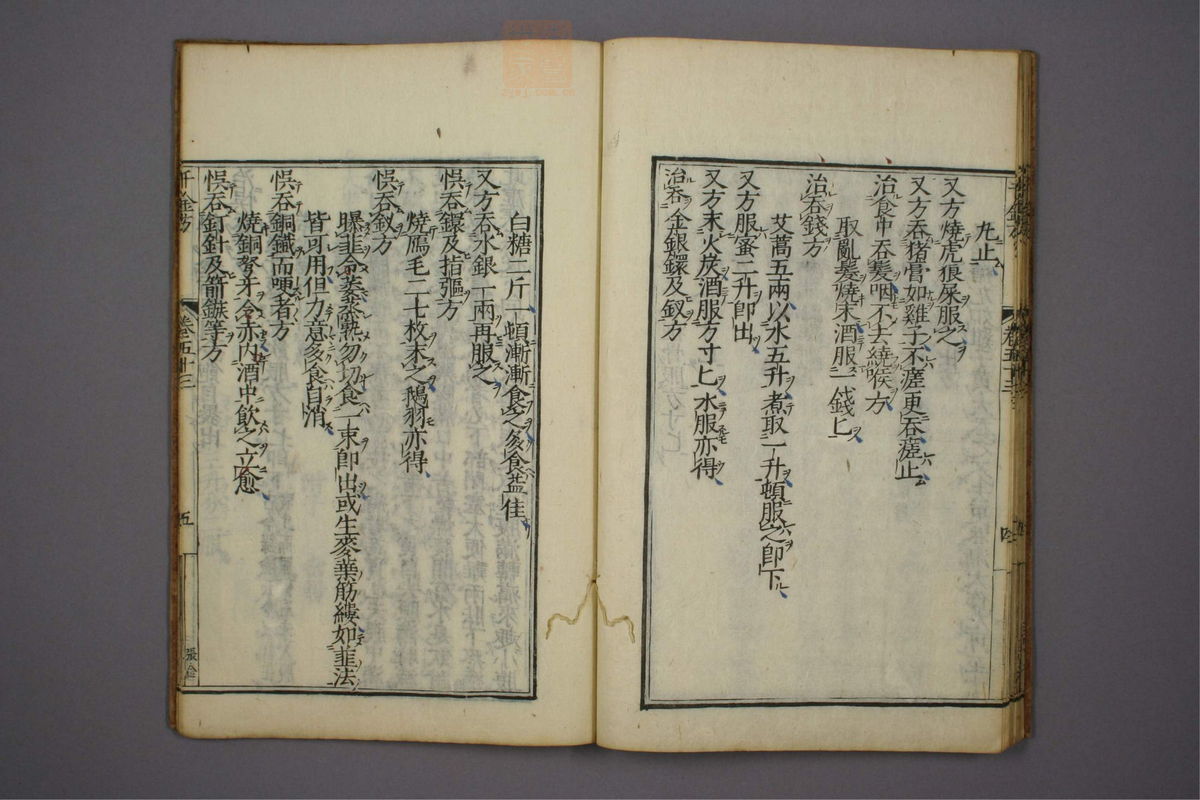 丸止
又方燒虎狼屎服之
又方吞猪膏如雞子不瘥更吞瘥止
治食中吞髮咽不去繞喉方
取亂髮燒末酒服一錢匕
治吞錢方
艾蒿五兩以水五升煮取一升頓服之即下
又方服蜜二升即出
又方末火炭酒服方寸匕水服亦得
治吞金銀鐶及釵方
白糖二斤一頓漸漸食之多食益佳
又方吞水銀一兩再服之
悞吞鐶及指彄方
燒鴈毛二七枚末之鵝羽亦得
悞吞釵方
曝韭令萎蒸熟勿切食一束即出或生麥葉筋縷如韮法
皆可用但力意多食自消
悞吞銅鐵而哽者方
燒銅弩牙令赤内酒中飲之立愈
悞吞釘針及箭鏃等方
千金方
卷五十三
五